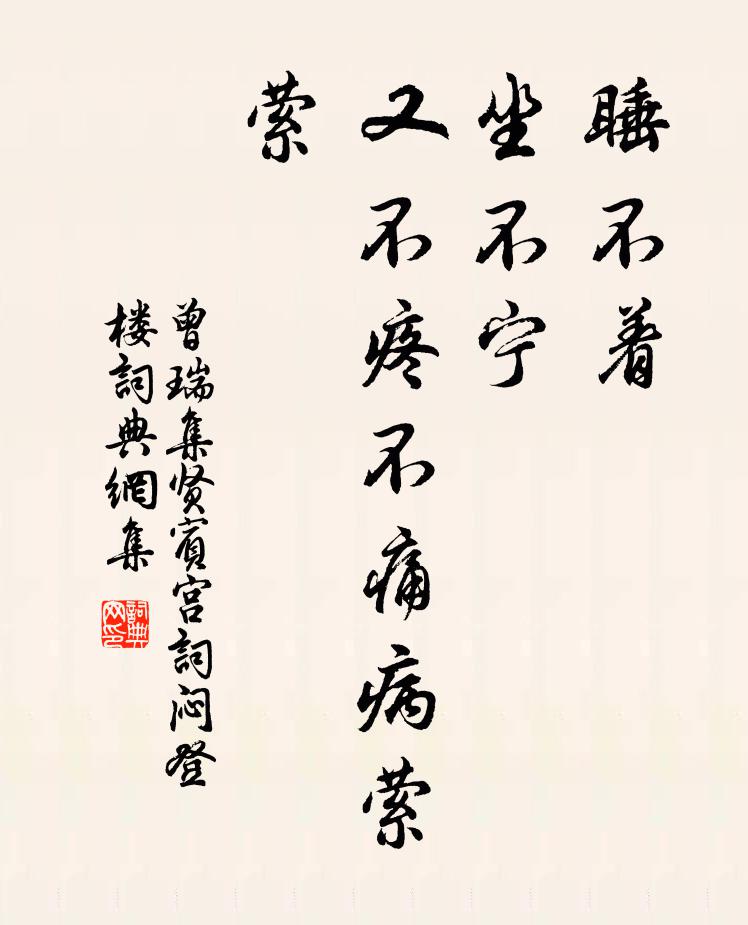 睡不着
坐不宁
又不疼不痛病萦
萦
曾瑞集贤宾宫詞闷登
楼詞典網集
詞典网印